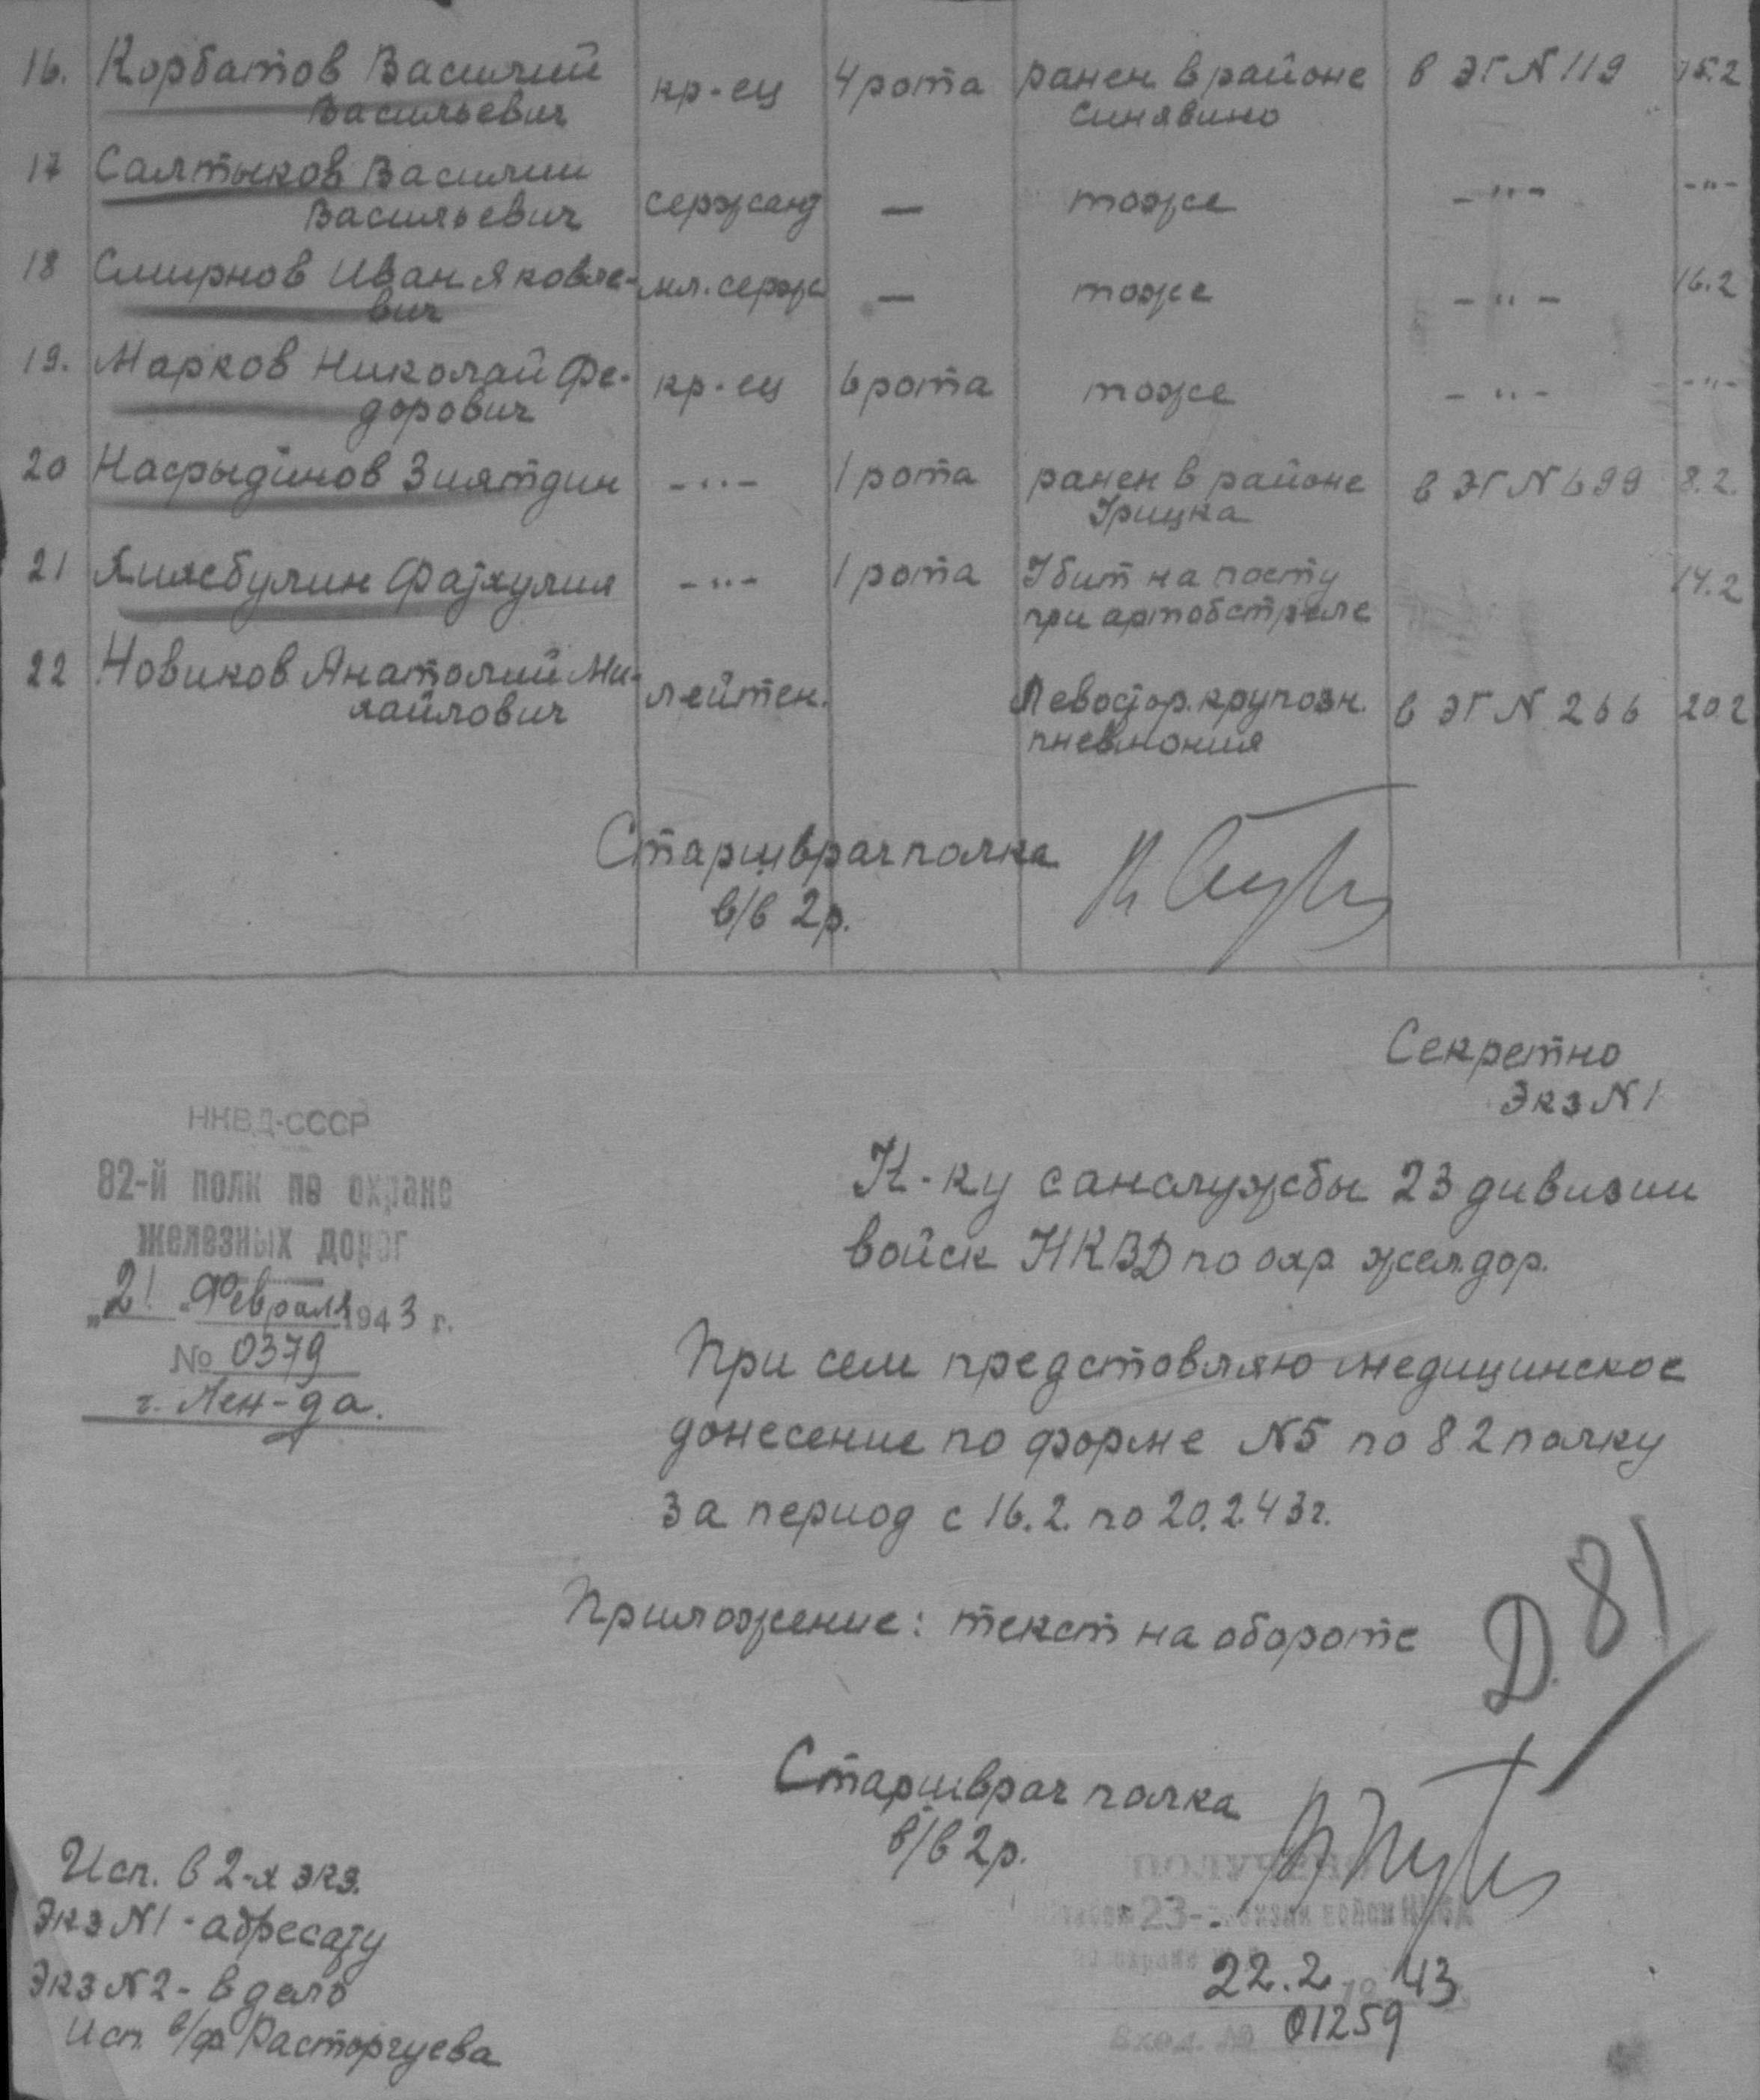 16. Корбатов Василий кр-ец 4 рота ранен в районе в ЭГ № 119 15.2
Васильевич Синявино
17 Салтыков Василий сержант — тоже -"- -"-
Васильевич
18 Смирнов Иван Яковле- мл. серж — тоже -"- 16.2
вич
19. Марков Николай Фе- кр-ец 6 рота тоже -"- -"-
дорович
20 Насрыдинов Зиятдин -"- 1 рота ранен в районе в ЭГ № 699 8.2.
Урицка
21 -"- 1 рота Убит на посту 14.2
при артобстреле
22 Новиков Анатолий Ми- лейтен. Левостор. крупозн. в ЭГ № 266 20.2
хайлович пневмония
Старш врач полка
в/в 2р.
Секретно
Экз №1
НКВД-СССР
82-й полк по охране
железных дорог
„21" Февраля 1943 г.
№ 0379
г. Лен-да.
Н-ку санслужбы 23 дивизии
войск НКВД по охр желдор.
При сем представляю медицинское
донесение по форме №5 по 82 полку
за период с 16.2. по 20.2.43г.
Приложение: текст на обороте
Д. 81
Старш врач полка
в/в 2р.
Исп. в 2-х экз.
Экз №1 - адресату
Экз №2 - в дело
Исп. в/ф Расторгуева
ПОЛУЧЕНО
23- дивизии войск НКВД
по охране
22.2 1943
Вход. № 01259